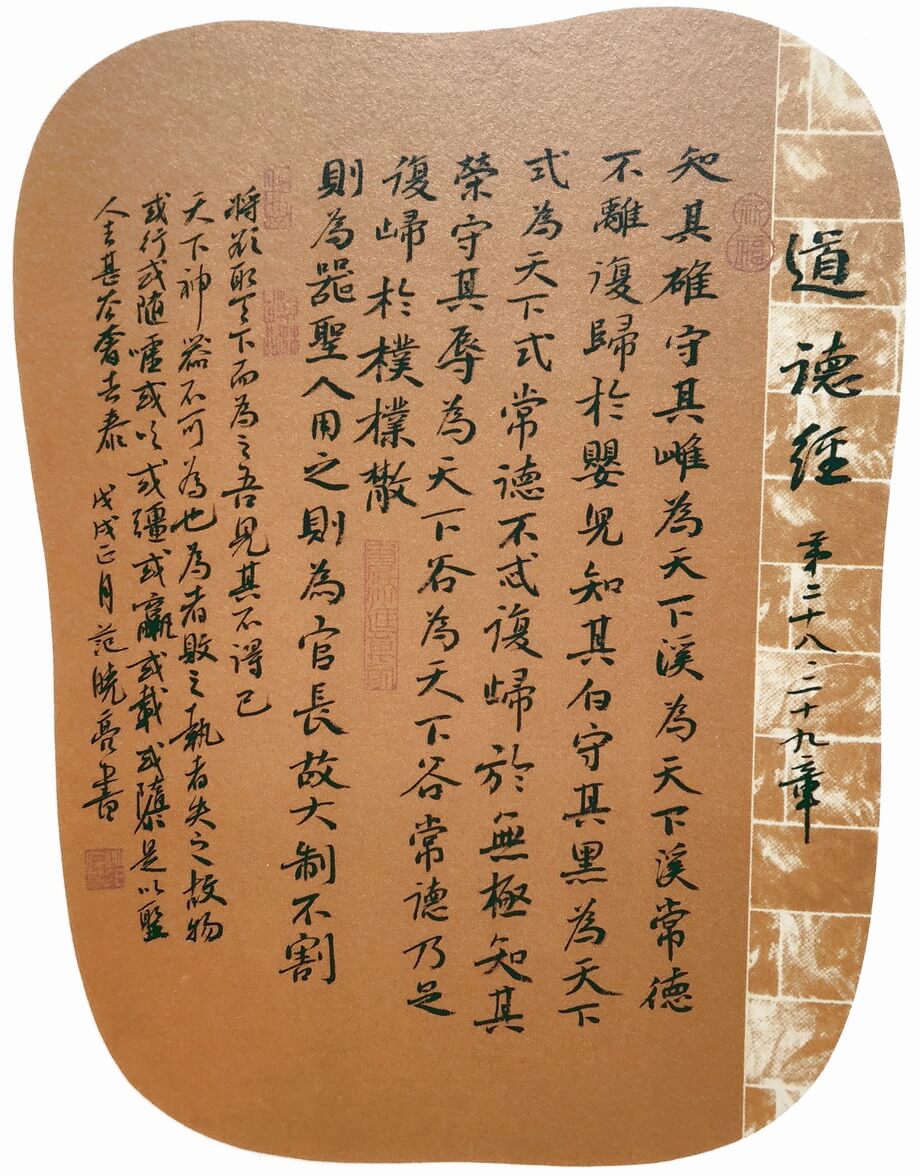 道德經 第二十八二十九章
知其雄守其雌為天下溪為天下溪常德
不離復歸於嬰兒知其白守其黑為天下
式為天下式常德不忒復歸於無極知其
榮守其辱為天下谷為天下谷常德乃足
復歸於樸樸散
則為器聖人用之則為官長故大制不割
將欲取天下而為之吾見其不得已
天下神器不可為也為者敗之執者失之故物
或行或隨噓或吹或彊或羸或載或隳是以聖
人去甚去奢去泰 戊戌正月范曉亮書